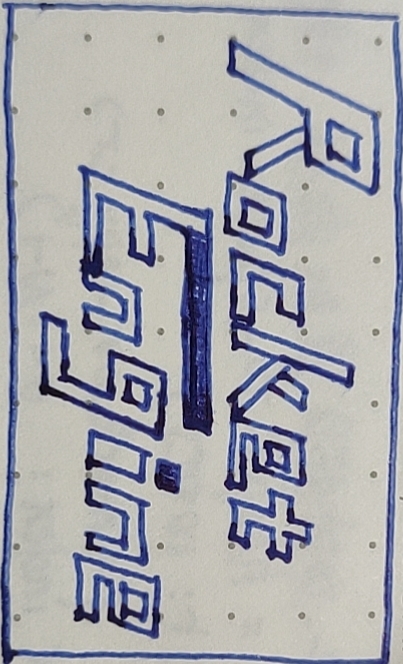 Rocket
Engine